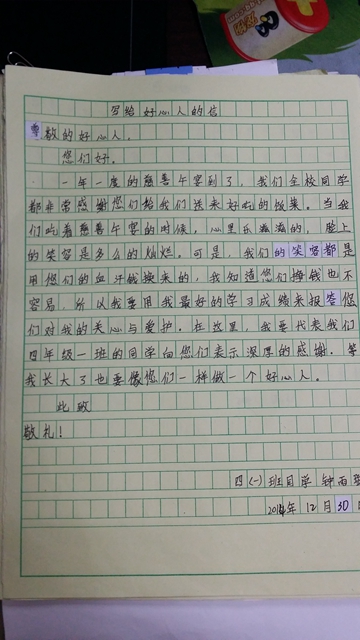 写给好心人的信
尊敬的好心人。
您们好。
一年一度的慈善午宴到了，我们全校同学
都非常感谢您们给我们送来好吃的饭菜。当我
们吃着慈善午宴的时候，心里乐滋滋的，脸上
的笑容是多么的灿烂。可是，我们的笑容都是
用您们的血汗钱换来的，我知道您们挣钱也不
容易，所以我要用我最好的学习成绩来报答您
们对我的关心与爱护。在这里，我要代表我们
四年级一班的同学向您们表示深厚的感谢。等
我长大了也要像您们一样做一个好心人。
此致
敬礼！
四(一)班同学 钟雨
年12月30